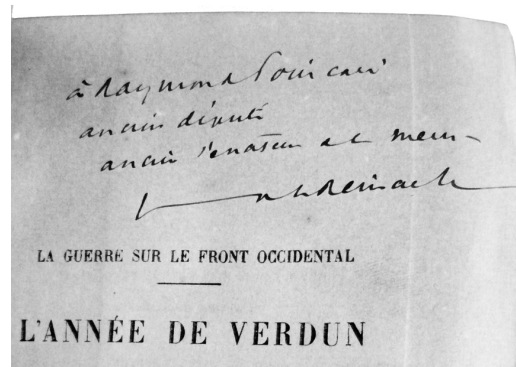 à Raymond Poincaré
ancien député
ancien sénateur et mem-
Reinach
LA GUERRE SUR LE FRONT OCCIDENTAL
L'ANNÉE DE VERDUN